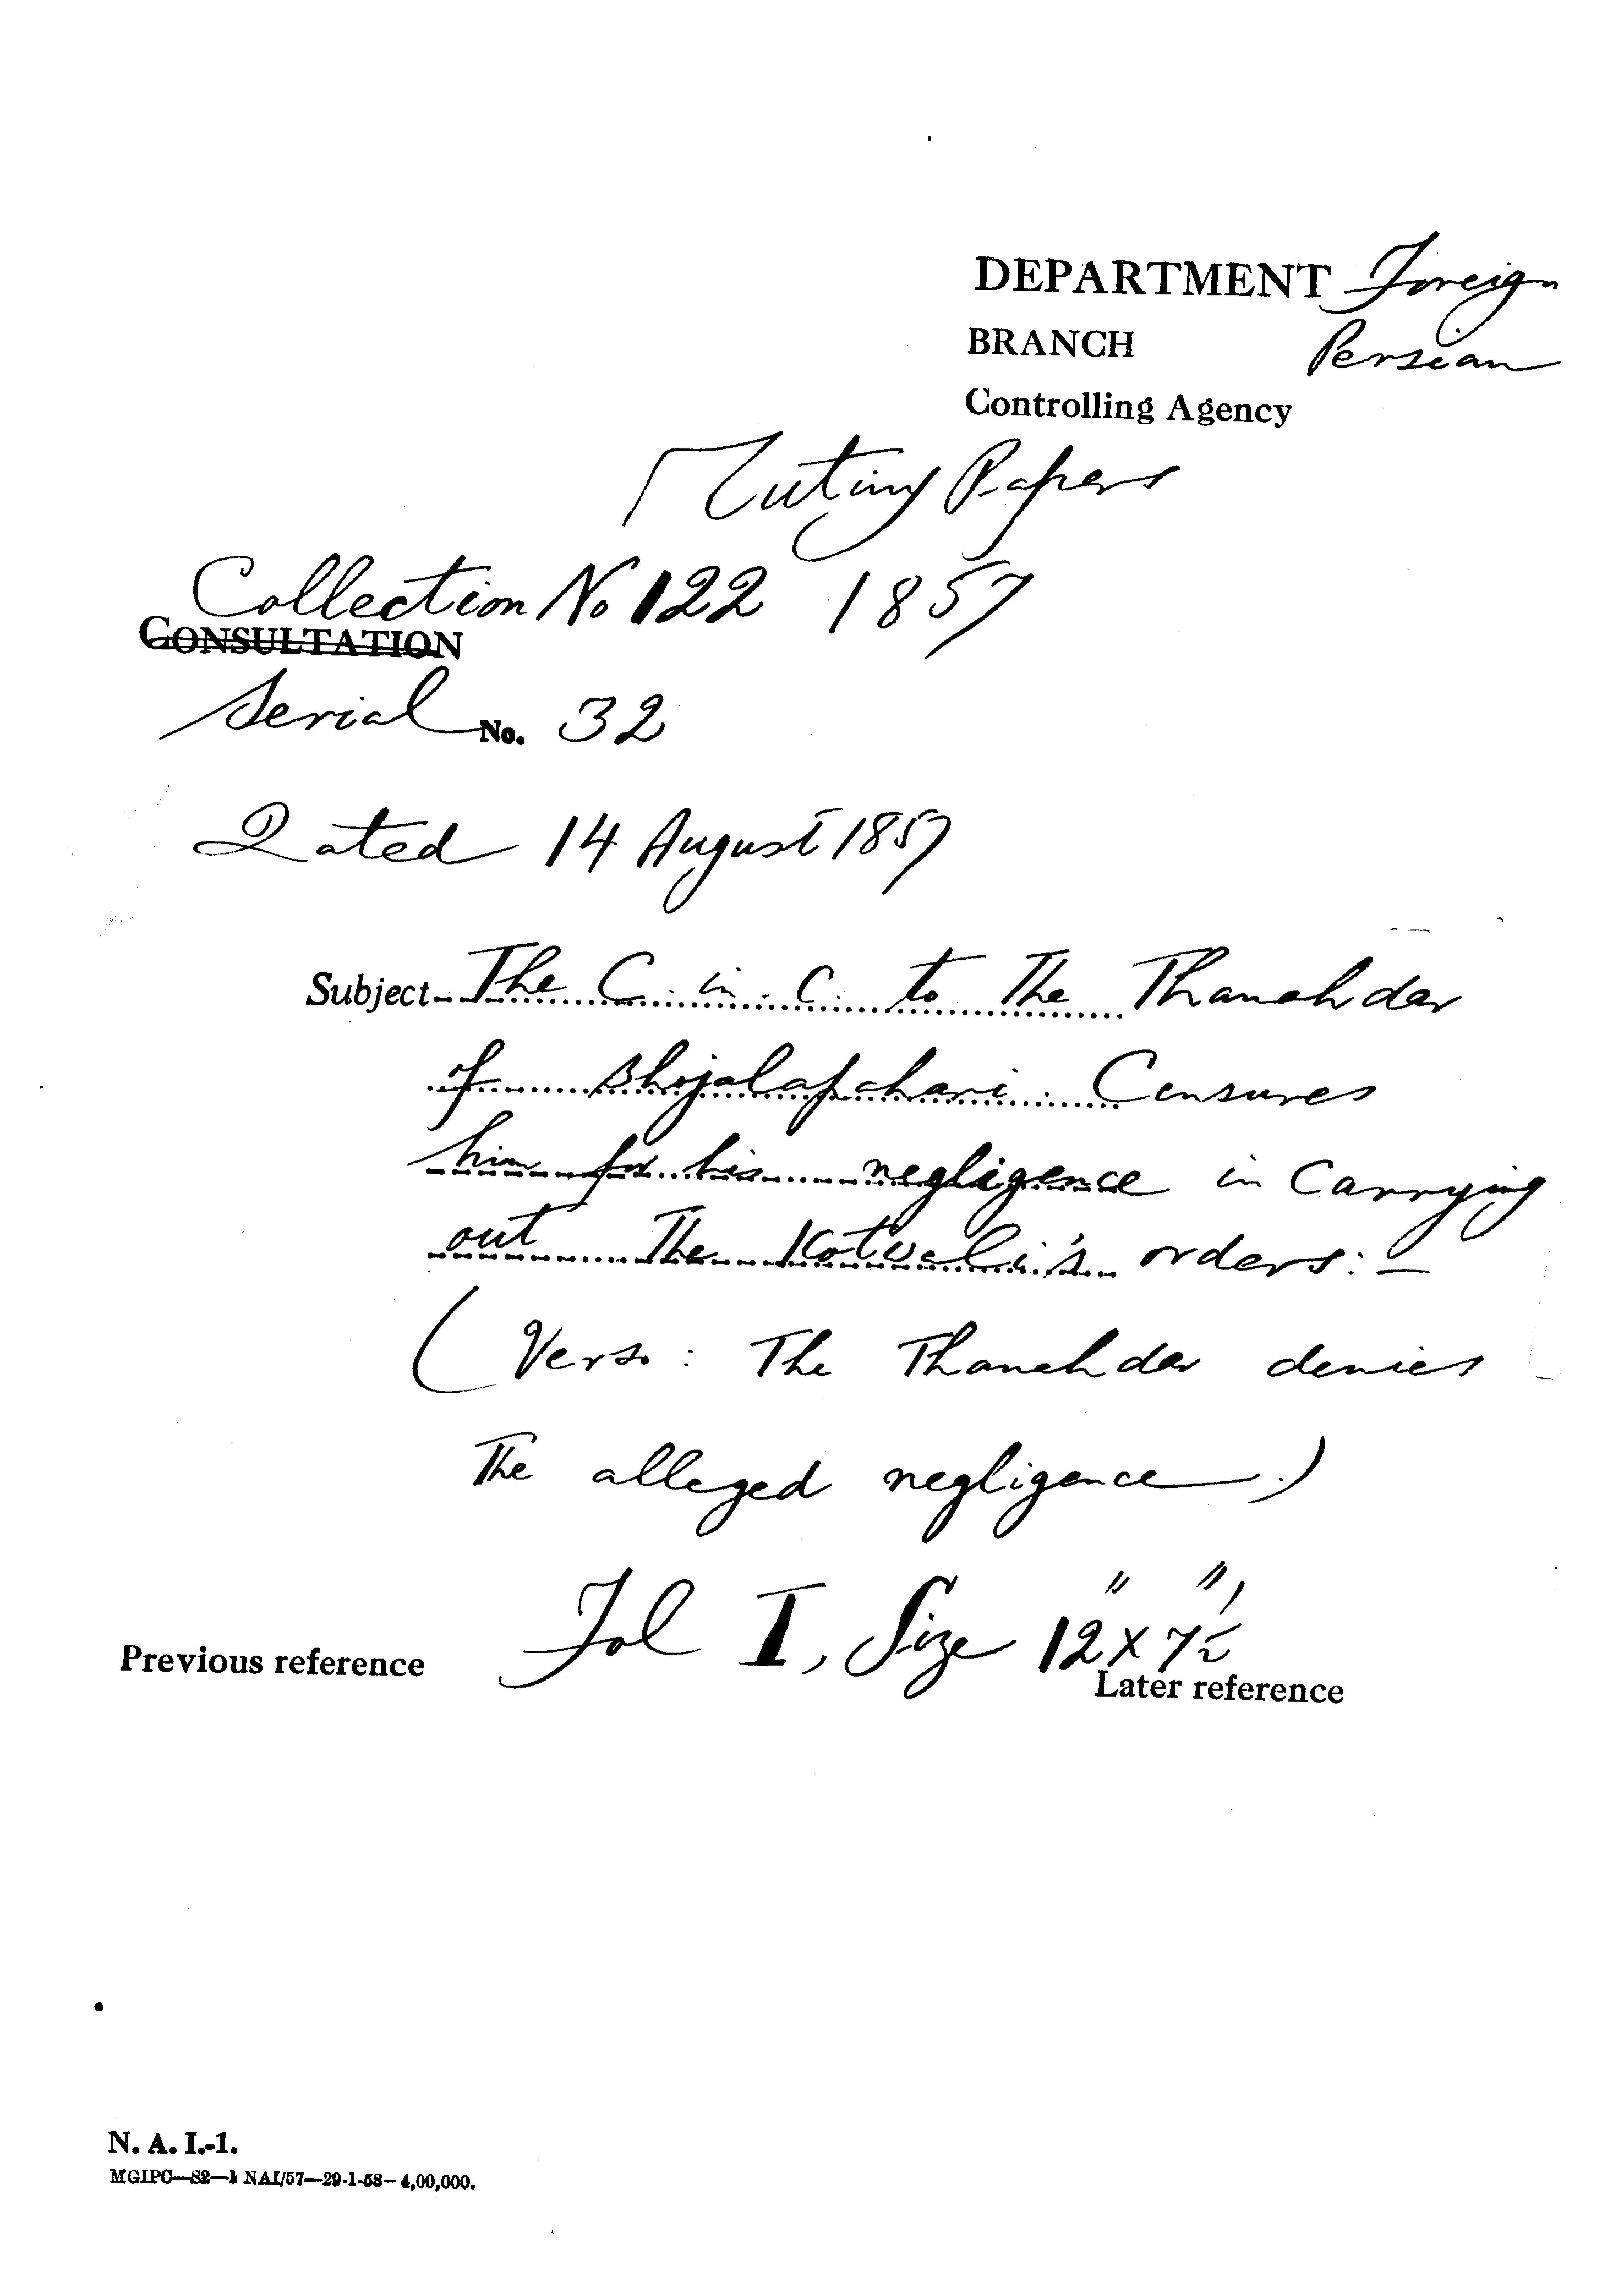 DEPARTMENT Foreign
BRANCH Persian
Controlling Agency
Mutiny Papers
Collection No 122 1857
CONSULTATION
Serial No. 32
Dated 14 August 1857
Subject- The C. in. C. to The Thanahdar
of Bhojalapahari. Censures
him for his negligence in Carrying
out The Kotwali's orders:-
( Verso : The Thanahdar denies
The alleged negligence.)
Fol I, Size 12" x 7½"
Previous reference
Later reference
N. A. I.-1.
MGIPC—S2—1 NAI/57—29-1-58—4,00,000.